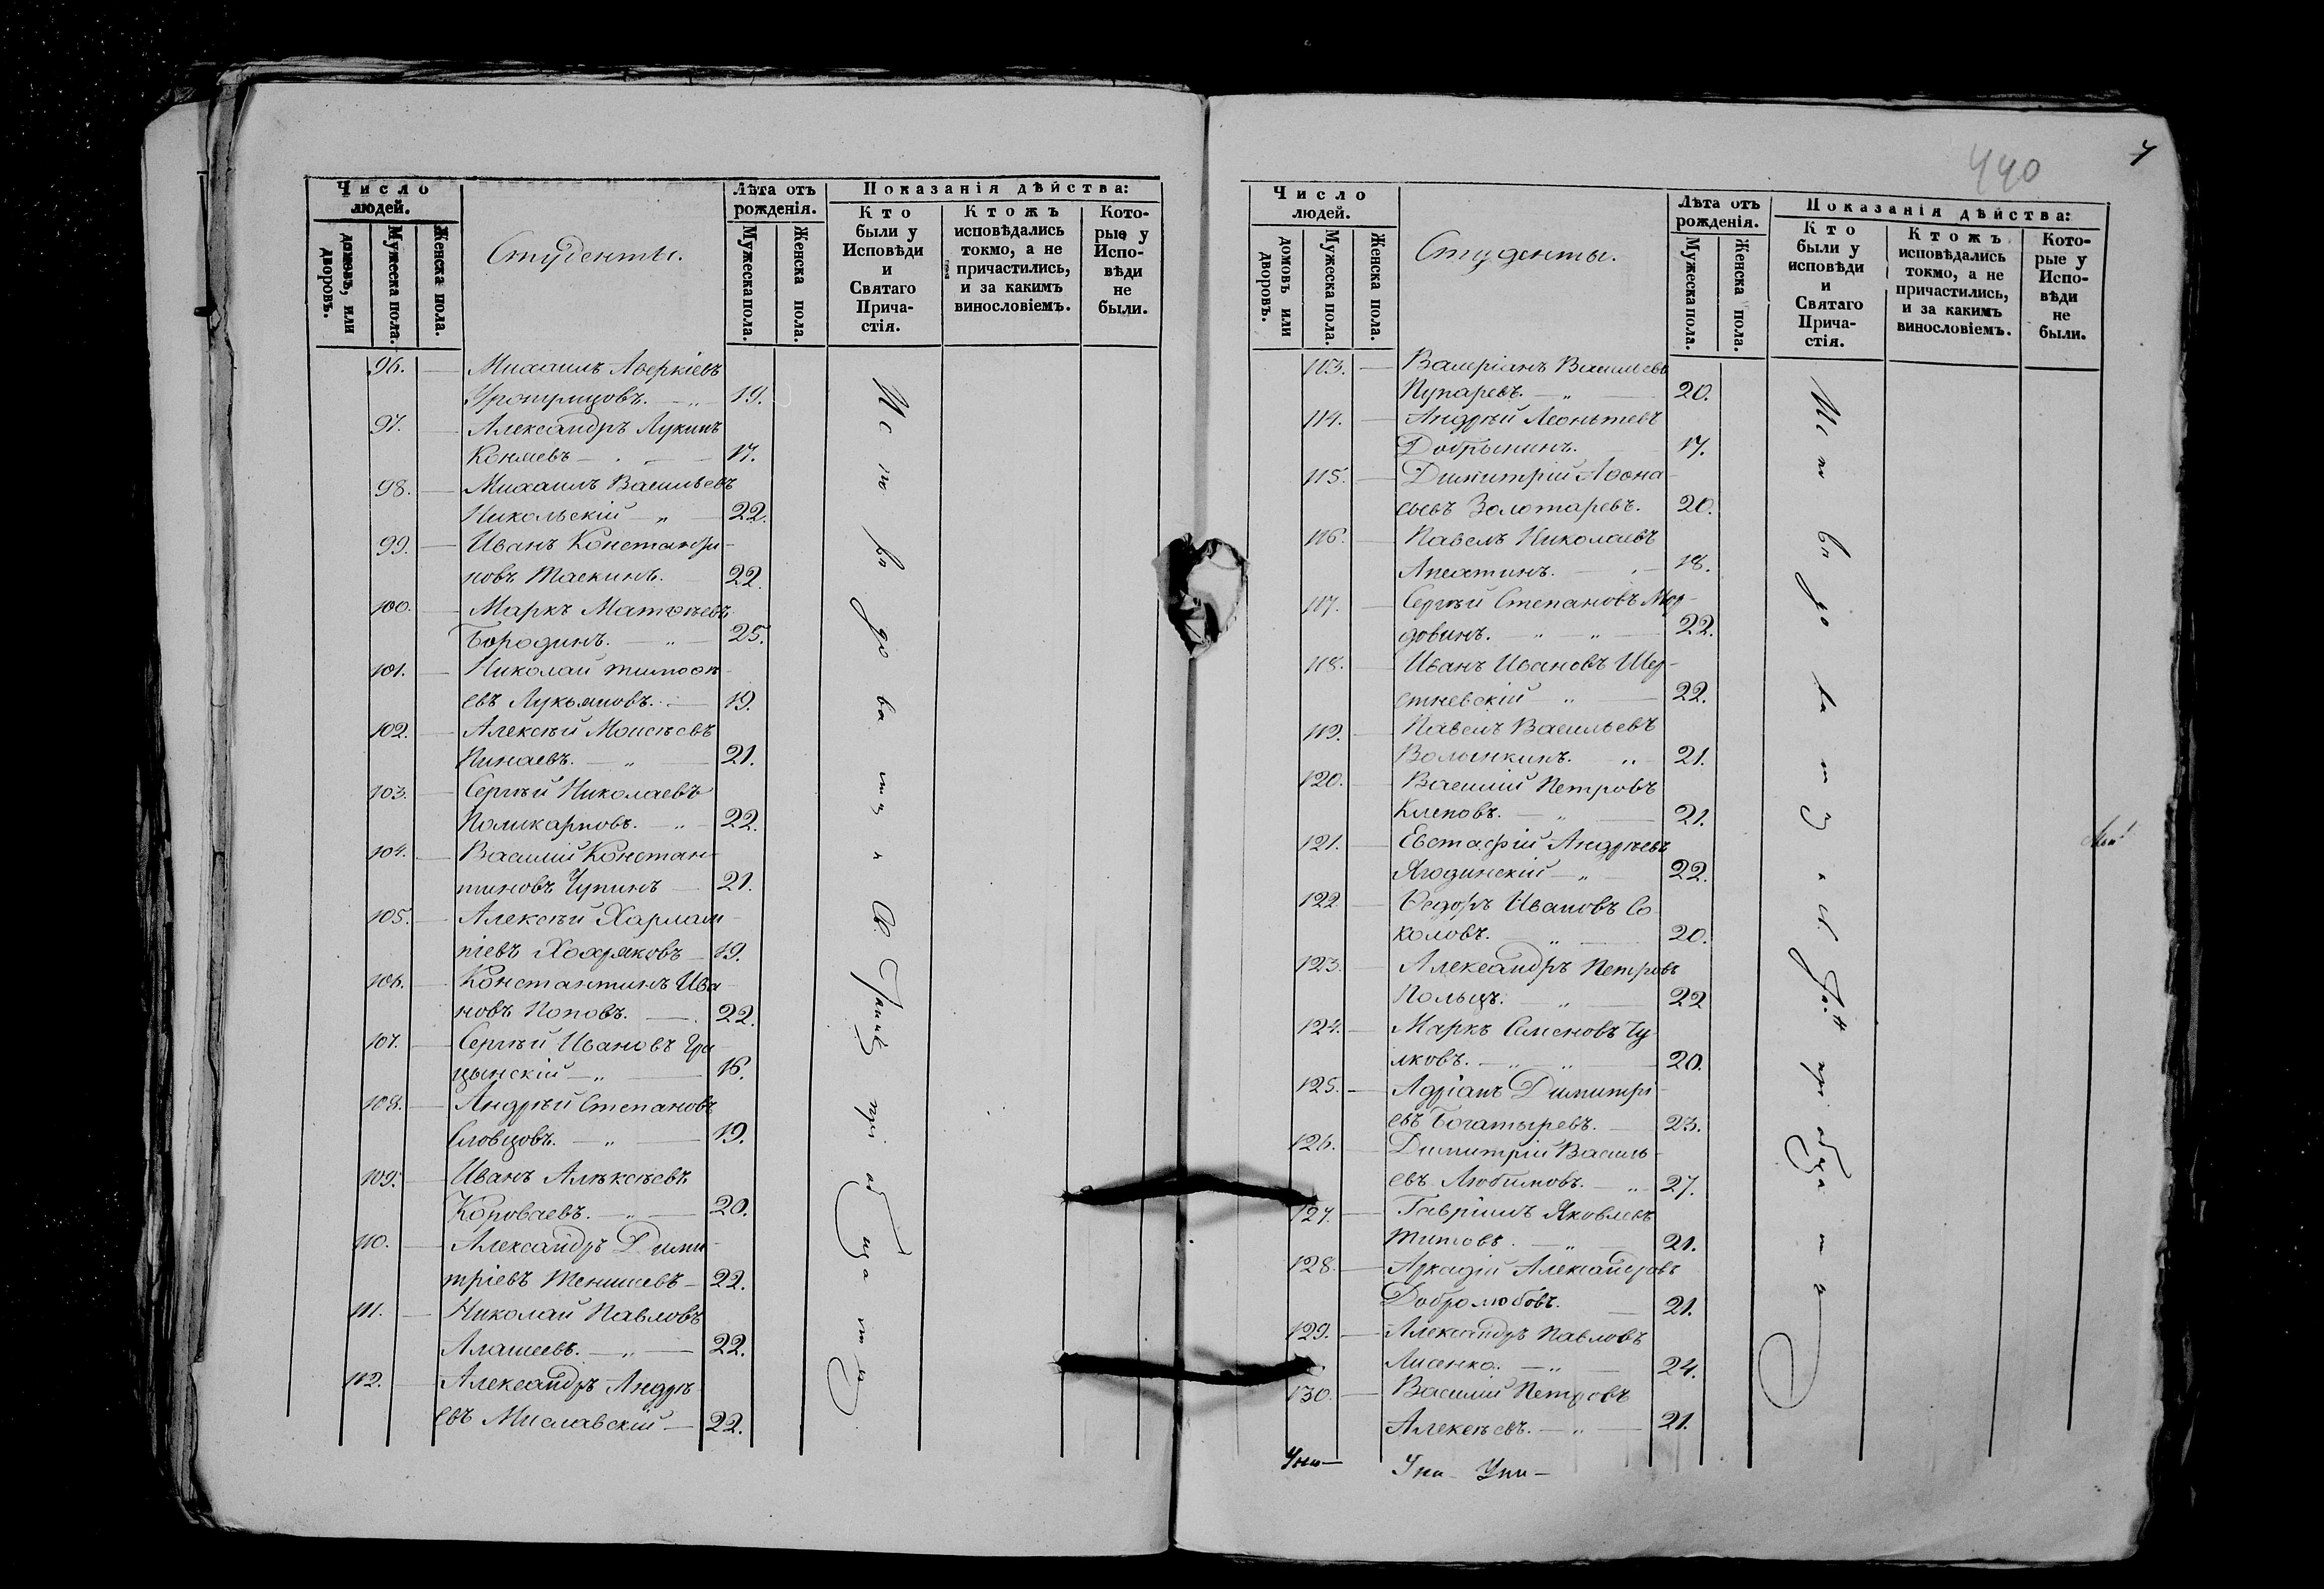 Число людей.
домовъ, или дворовъ.
Мужеска пола.
Женска пола.
Студенты.
Лѣта отъ рожденія.
Мужеска пола.
Женска пола.
Показанія дѣйства:
Кто были у Исповѣди и Святаго Прича-стія.
Ктожъ исповѣдались токмо, а не причастились, и за какимъ винословіемъ.
Кото-рые у Испо-вѣди не были.
96. Михаилъ Аверкіевъ
19.
97. Александръ Лукинъ
Коняевъ 17.
98. Михаилъ Васильевъ
Никольскій 22.
99. Иванъ Константи-
новъ Таскинъ. 22.
100. Маркъ Матвѣевъ
Бородинъ. 25.
101. Николай Тимоѳѣ-
евъ Лукьяновъ. 19.
102. Алексѣй Моисѣевъ
Пинаевъ. 21.
103. Сергѣй Николаевъ
Поликарповъ. 22.
104. Василій Констан-
тиновъ Чупинъ 21.
105. Алексѣй Харлам-
піевъ Хохряковъ 19.
106. Константинъ Ива-
новъ Поповъ. 22.
107. Сергѣй Ивановъ Гра-
цынскій 16.
108. Андрѣй Степановъ
Словцовъ. 19.
109. Иванъ Алѣксѣевъ
Коноваевъ. 20.
110. Александръ Дими-
тріевъ 22.
111. Николай Павловъ
Алашеевъ. 22.
112. Александръ Андрѣ-
евъ Миславскій 22.
Исповѣдовались и Св. пріобщались
440
Число людей.
домовъ или дворовъ.
Мужеска пола.
Женска пола.
Студенты.
Лѣта отъ рожденія.
Мужеска пола.
Женска пола.
Показанія дѣйства:
Кто были у исповѣди и Святаго Прича-стія.
Ктожъ исповѣдались токмо, а не причастились, и за какимъ винословіемъ.
Кото-рые у Испо-вѣди не были.
113. Валеріанъ Васильевъ
Пупаревъ. 20.
114. Андрѣй Леонтьевъ
Добрынинъ. 17.
115. Димитрій Аѳона-
сьевъ Золотаревъ. 20.
116. Павелъ Николаевъ
Апсатинъ. 18.
117. Сергѣй Степановъ Мор-
довинъ. 22.
118. Иванъ Ивановъ Шер-
стневскій 22.
119. Павелъ Васильевъ
Волынкинъ. 21.
120. Василій Петровъ
Клеповъ. 21.
121. Евстафій Андрѣевъ
Ягодинскій 22.
122. Ѳедоръ Ивановъ Со-
коловъ. 20.
123. Александръ Петровъ
Польцъ. 22
124. Маркъ Семеновъ Чу-
лковъ. 20.
125. Адріанъ Димитрі-
евъ Богатыревъ. 23.
126. Димитрій Василь-
евъ Любимовъ. 27.
127. Гавріилъ Яковлевъ
Титовъ. 21.
128. Аркадій Александровъ
Добролюбовъ. 21.
129. Александръ Павловъ
Лисенко. 24.
130. Василій Петровъ
Алексѣевъ. 21.